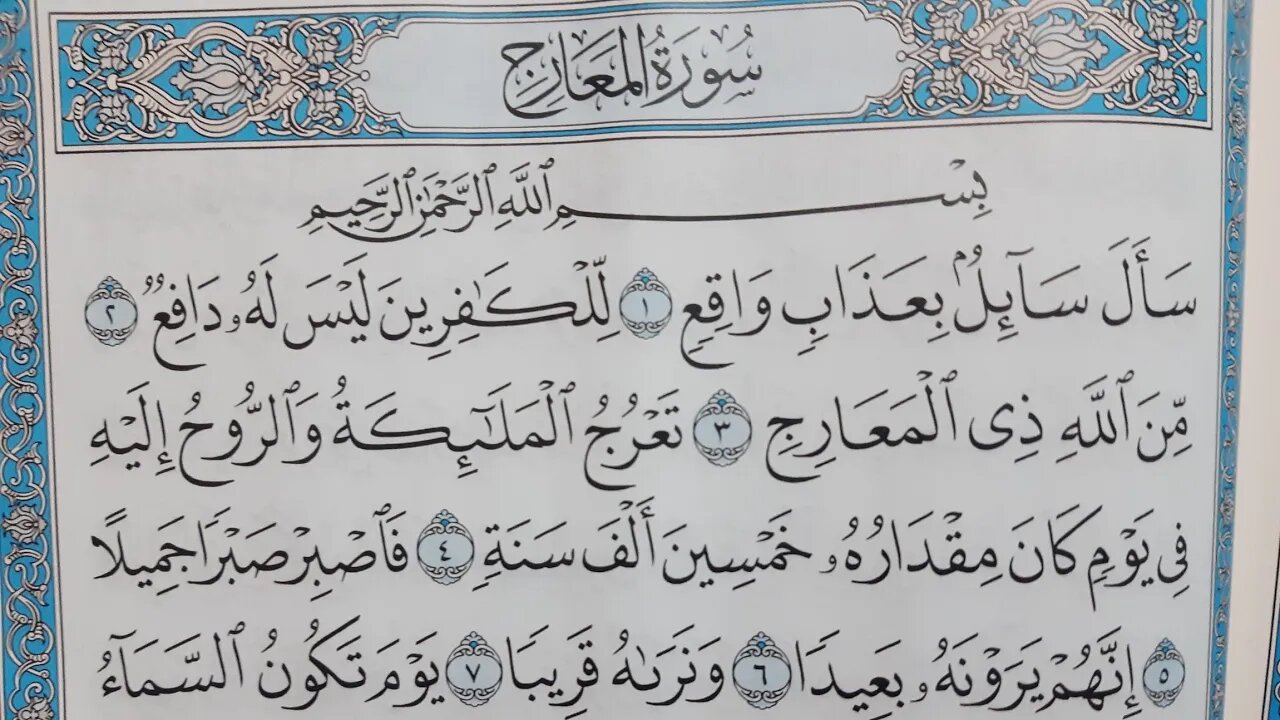 سُورَةُ المَعَارِج
بِسْمِ ٱللَّهِ ٱلرَّحْمَٰنِ ٱلرَّحِيمِ
سَأَلَ سَآئِلُۢ بِعَذَابٍ وَاقِعٍ ١ لِّلْكَٰفِرِينَ لَيْسَ لَهُۥ دَافِعٌ ٢
مِّنَ ٱللَّهِ ذِى ٱلْمَعَارِجِ ٣ تَعْرُجُ ٱلْمَلَٰٓئِكَةُ وَٱلرُّوحُ إِلَيْهِ
فِى يَوْمٍ كَانَ مِقْدَارُهُۥ خَمْسِينَ أَلْفَ سَنَةٍ ٤ فَٱصْبِرْ صَبْرًا جَمِيلًا
٥ إِنَّهُمْ يَرَوْنَهُۥ بَعِيدًا ٦ وَنَرَىٰهُ قَرِيبًا ٧ يَوْمَ تَكُونُ ٱلسَّمَآءُ